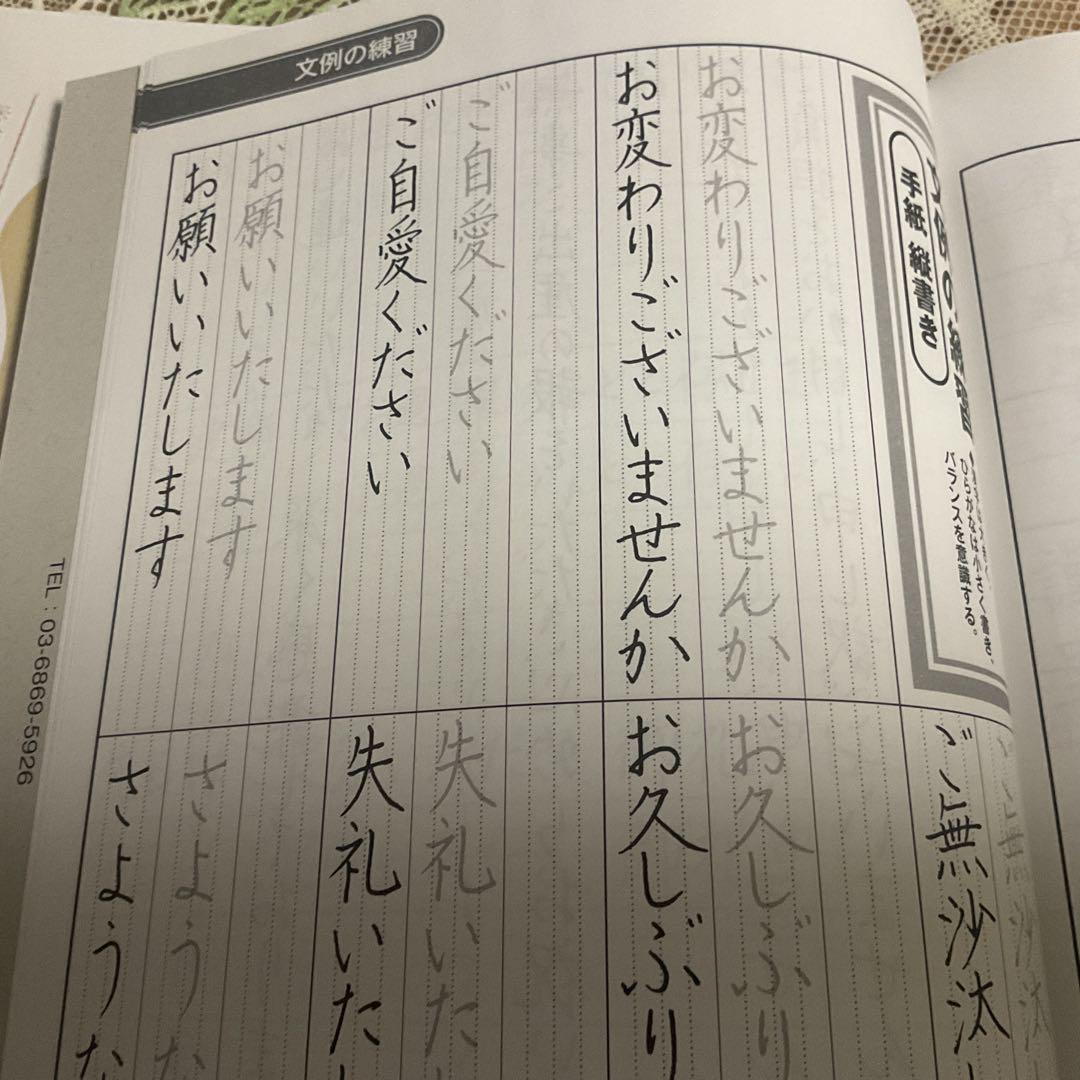 文例の練習
文例の練習
手紙 縦書き
ひらがなは小さく書き、
バランスを意識する。
お変わりございませんか
お変わりございませんか
ご自愛ください
ご自愛ください
お願いいたします
お願いいたします
ご無沙汰
ご無沙汰
お久しぶり
お久しぶり
失礼いた
失礼いた
さような
さような
TEL：03-6869-5926